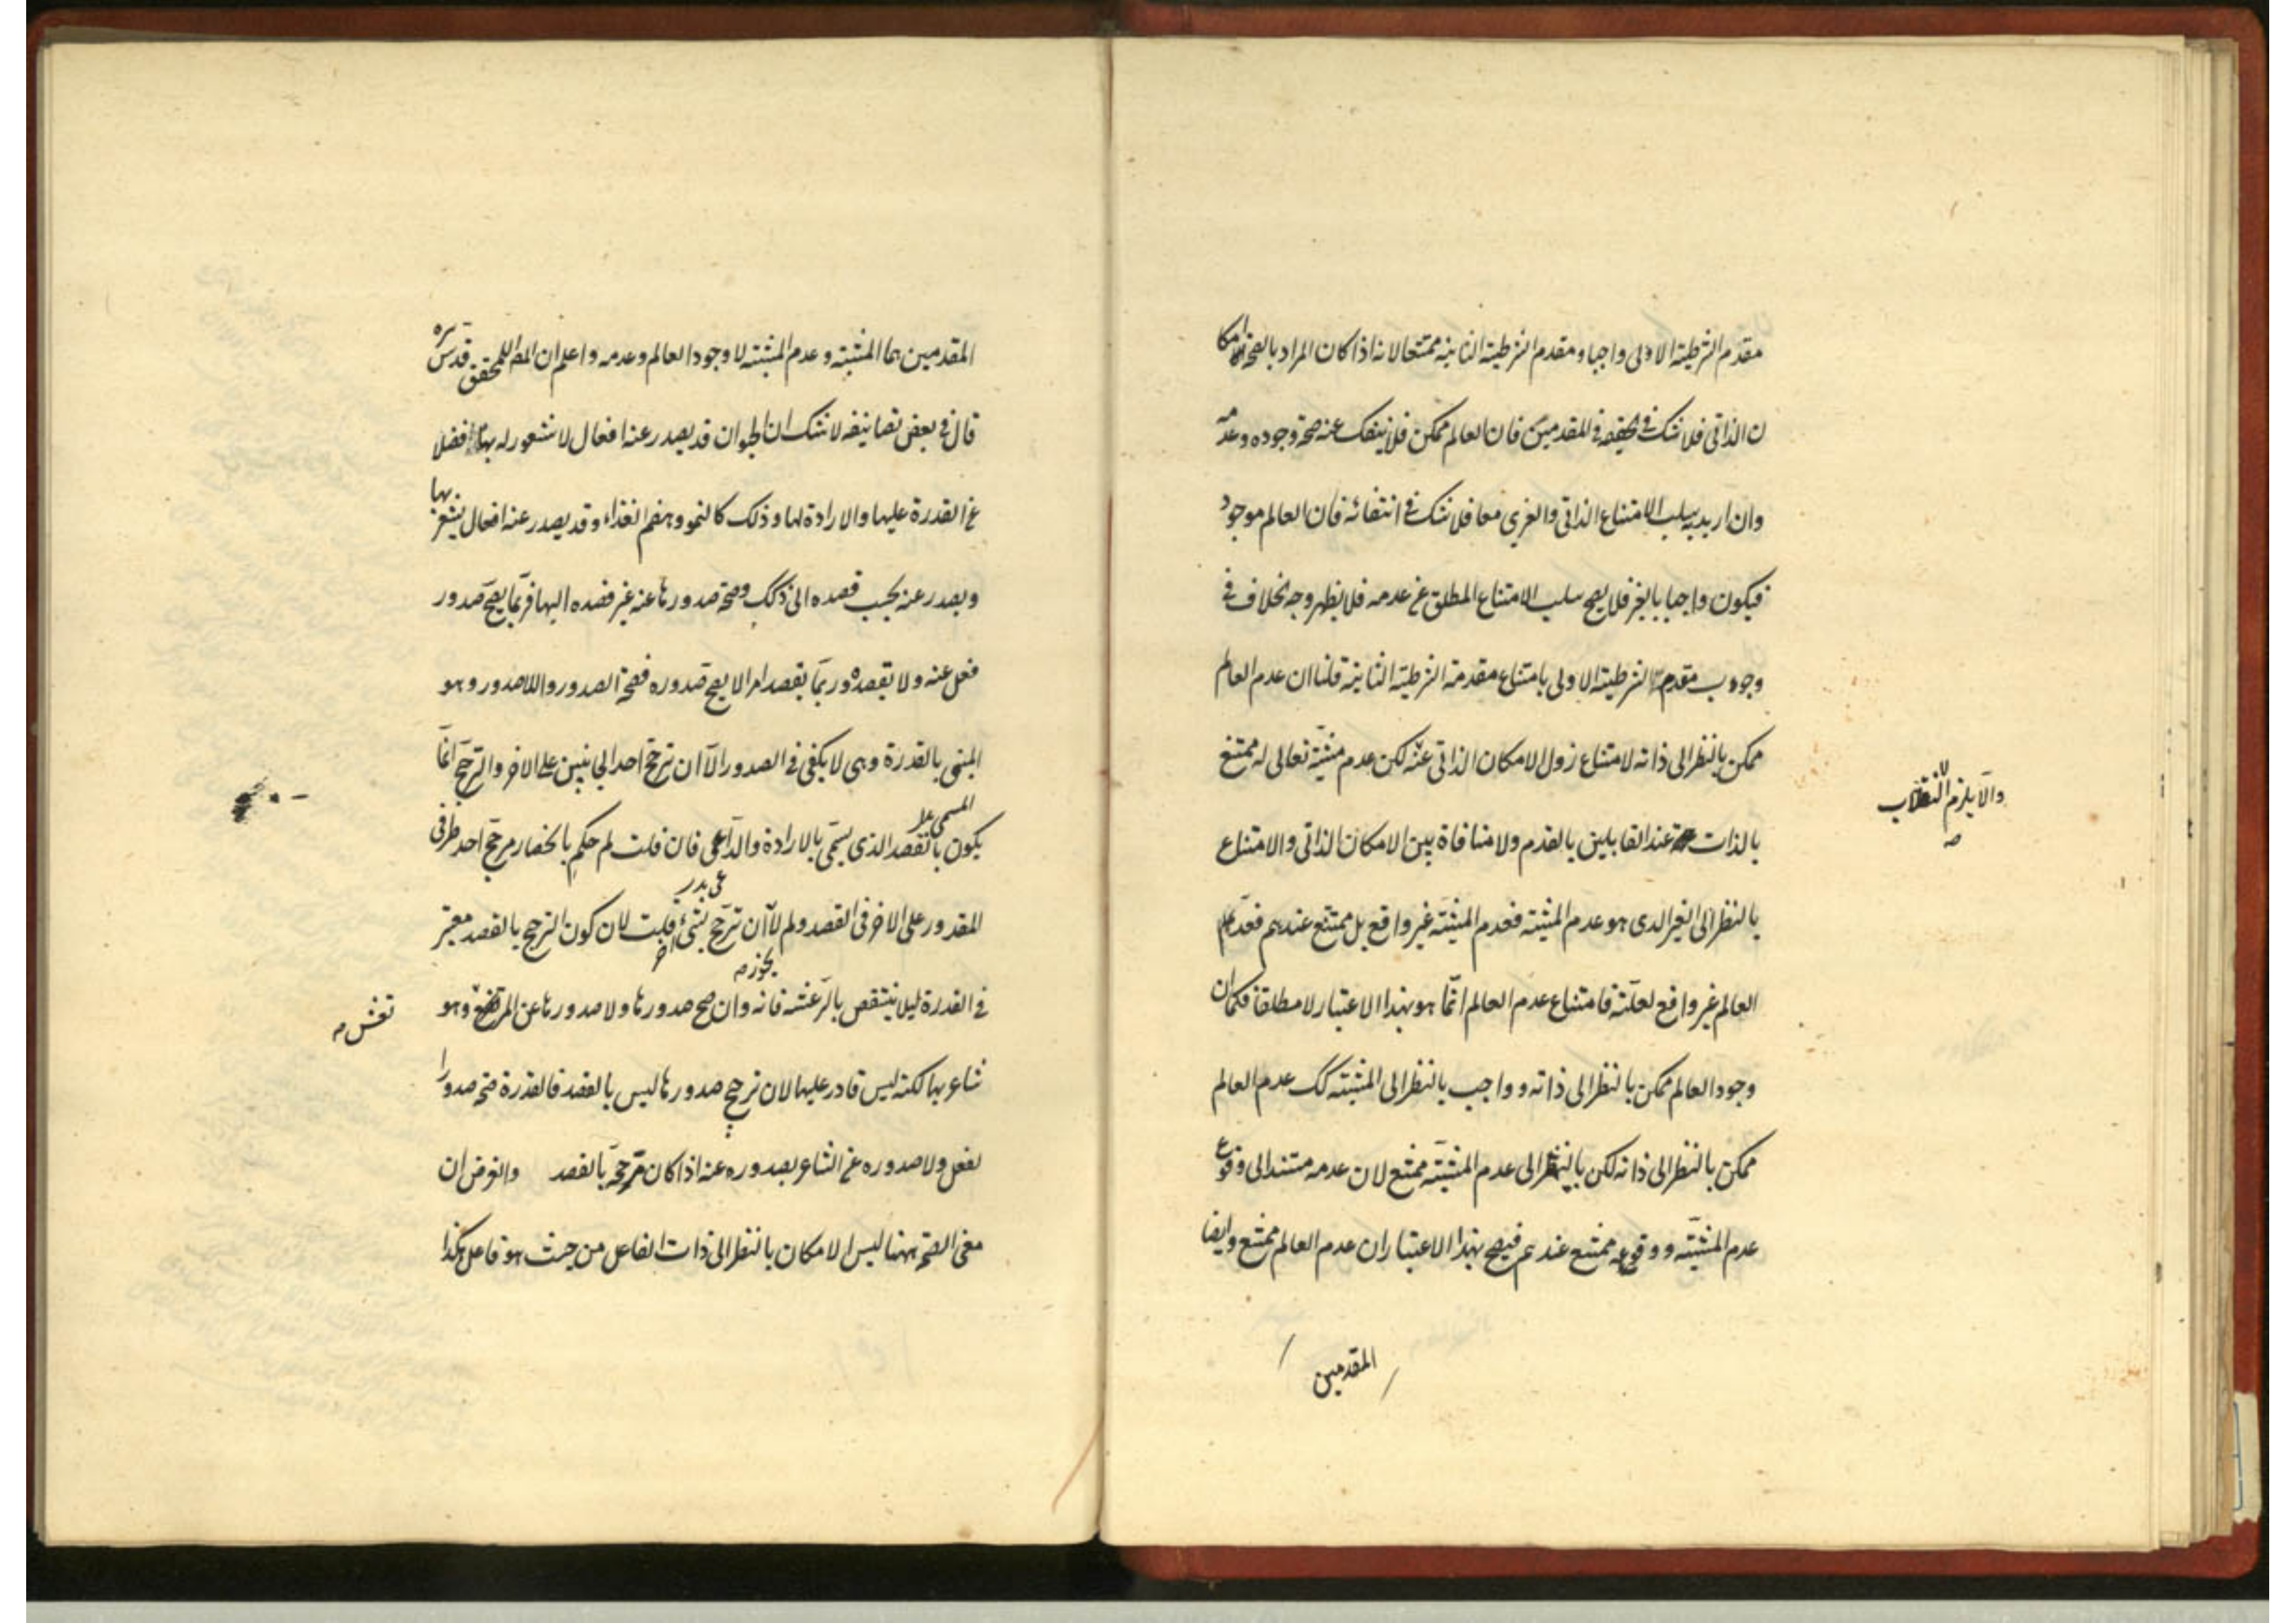 مقدم الشرطية الاولى واجبا و مقدم الشرطية الثانية ممتنعا لانه اذا كان المراد بالصحة الامكا
ن الذاتى فلا شك فى تحققه فى المقدمين فان العالم ممكن فلا ينفك عنه صحة وجوده وعدمه
وان اريد به سلب الامتناع الذاتى والغيري معا فلا شك فى انتفائه فان العالم موجود
فيكون واجبا بالغير فلا يصح سلب الامتناع المطلق عن عدمه فلا يظهر وجه بخلاف فى
وجوب مقدم الشرطية الاولى بامتناع مقدمة الشرطية الثانية قلنا ان عدم العالم
ممكن بالنظر الى ذاته لامتناع زول الامكان الذاتى عنه لكن عدم مشيته تعالى له ممتنع
والا يلزم الانقلاب
صه
بالذات عند القايلين بالقدم ولا منافاة بين الامكان الذاتى والامتناع
بالنظر الى الغير الذى هو عدم المشيته فعدم المشيته غير واقع بل ممتنع عندهم فعدم
العالم غير واقع لعلته فامتناع عدم العالم انما هو بهذا الاعتبار لا مطلقا فكما ان
وجود العالم ممكن بالنظر الى ذاته و واجب بالنظر الى المشيته كك عدم العالم
ممكن بالنظر الى ذاته لكن بالنظر الى عدم المشيته ممتنع لان عدمه مستند الى وقوع
عدم المشيته و وقوعه ممتنع عندهم فيصح بهذا الاعتبار ان عدم العالم ممتنع وايضا
المقدمين
المقدمين هما المشيته و عدم المشيته لا وجود العالم وعدمه واعلم ان المص المحقق قدس سره
قال فى بعض تصانيفه لا شك ان الحيوان قد يصدر عنه افعال لا شعور له بها فضلا
عن القدرة عليها والارادة لها وذلك كالنمو وهضم الغذاء وقد يصدر عنه افعال يشعر بها
ويصدر عنه بحسب قصده الى ذلك وصحة صدورها عنه غير قصده اليها فربما يصح صدور
فعل عنه ولا يقصده وربما يقصد امرا لا يصح صدوره فصحة الصدور واللاصدور وهو
المسمى بالقدرة وهى لا يكفى فى الصدور الا ان ترجح احد الجانبين على الاخر والترجح انما
يكون بالقصد الذى يسمى بالارادة والداعى فان قلت لم حكم بانحصار مرجح احد طرفى
المقدور على الاخر فى القصد ولم لا يجوز ان ترجح بشئ اخر قلت لان كون الترجيح بالقصد معتبر
فى القدرة ليلا ينتقص بالرعشه فانه وان صح صدورها ولا صدورها عن المرتعش وهو
شاعر بها لكنه ليس قادر عليها لان ترجح صدورها ليس بالقصد فالقدرة صحة صدور
لفعل ولا صدوره عن الشاعر بصدوره عنه اذا كان مرجحه بالقصد والغرض ان
معنى الصحة ههنا ليس الامكان بالنظر الى ذات الفاعل من حيث هو فاعل هكذا